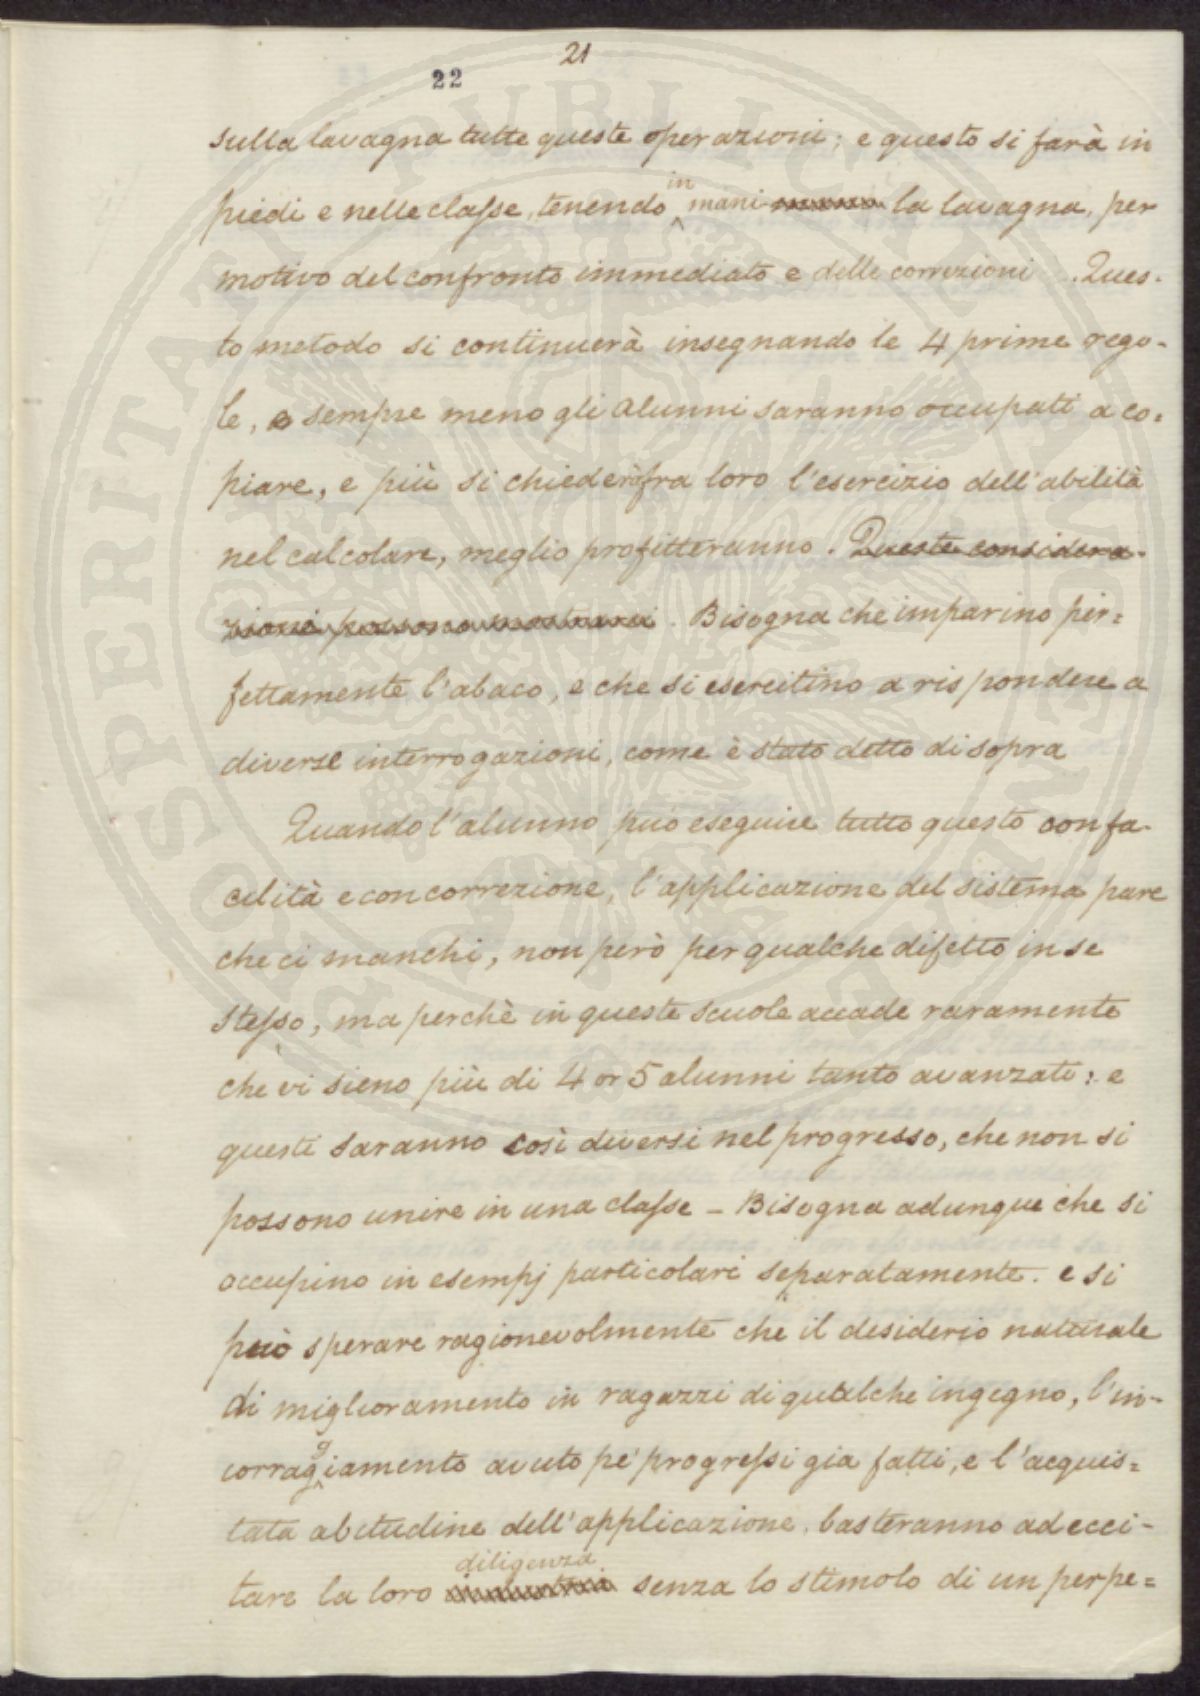 21
22
sulla lavagna tutte queste operazioni; e questo si farà in
piedi e nelle classe, tenendo in mani la lavagna, per
motivo del confronto immediato e delle correzioni. Ques-
to metodo si continuerà insegnando le 4 prime rego-
le, e sempre meno gli alunni saranno occupati a co-
piare, e più si chiederà fra loro l'esercizio dell'abilità
nel calcolare, meglio profitteranno. Queste considera-
zioni possono mostrarci. Bisogna che imparino per=
fettamente l'abaco, e che si esercitino a rispondere a
diverse interrogazioni, come è stato detto di sopra
Quando l'alunno può eseguire tutto questo con fa-
cilità e con correzione, l'applicazione del sistema pare
che ci manchi, non però per qualche difetto in se
stesso, ma perchè in queste scuole accade raramente
che vi sieno più di 4 or 5 alunni tanto avanzati; e
questi saranno così diversi nel progresso, che non si
possono unire in una classe - Bisogna adunque che si
occupino in esempj particolari separatamente. e si
può sperare ragionevolmente che il desiderio naturale
di miglioramento in ragazzi di qualche ingegno, l'in-
corraggiamento avuto pe' progressi gia fatti, e l'acquis=
tata abitudine dell'applicazione, basteranno ad ecci-
tare la loro diligenza senza lo stimolo di un perpe=
PROSPERITATI PUBLICAE